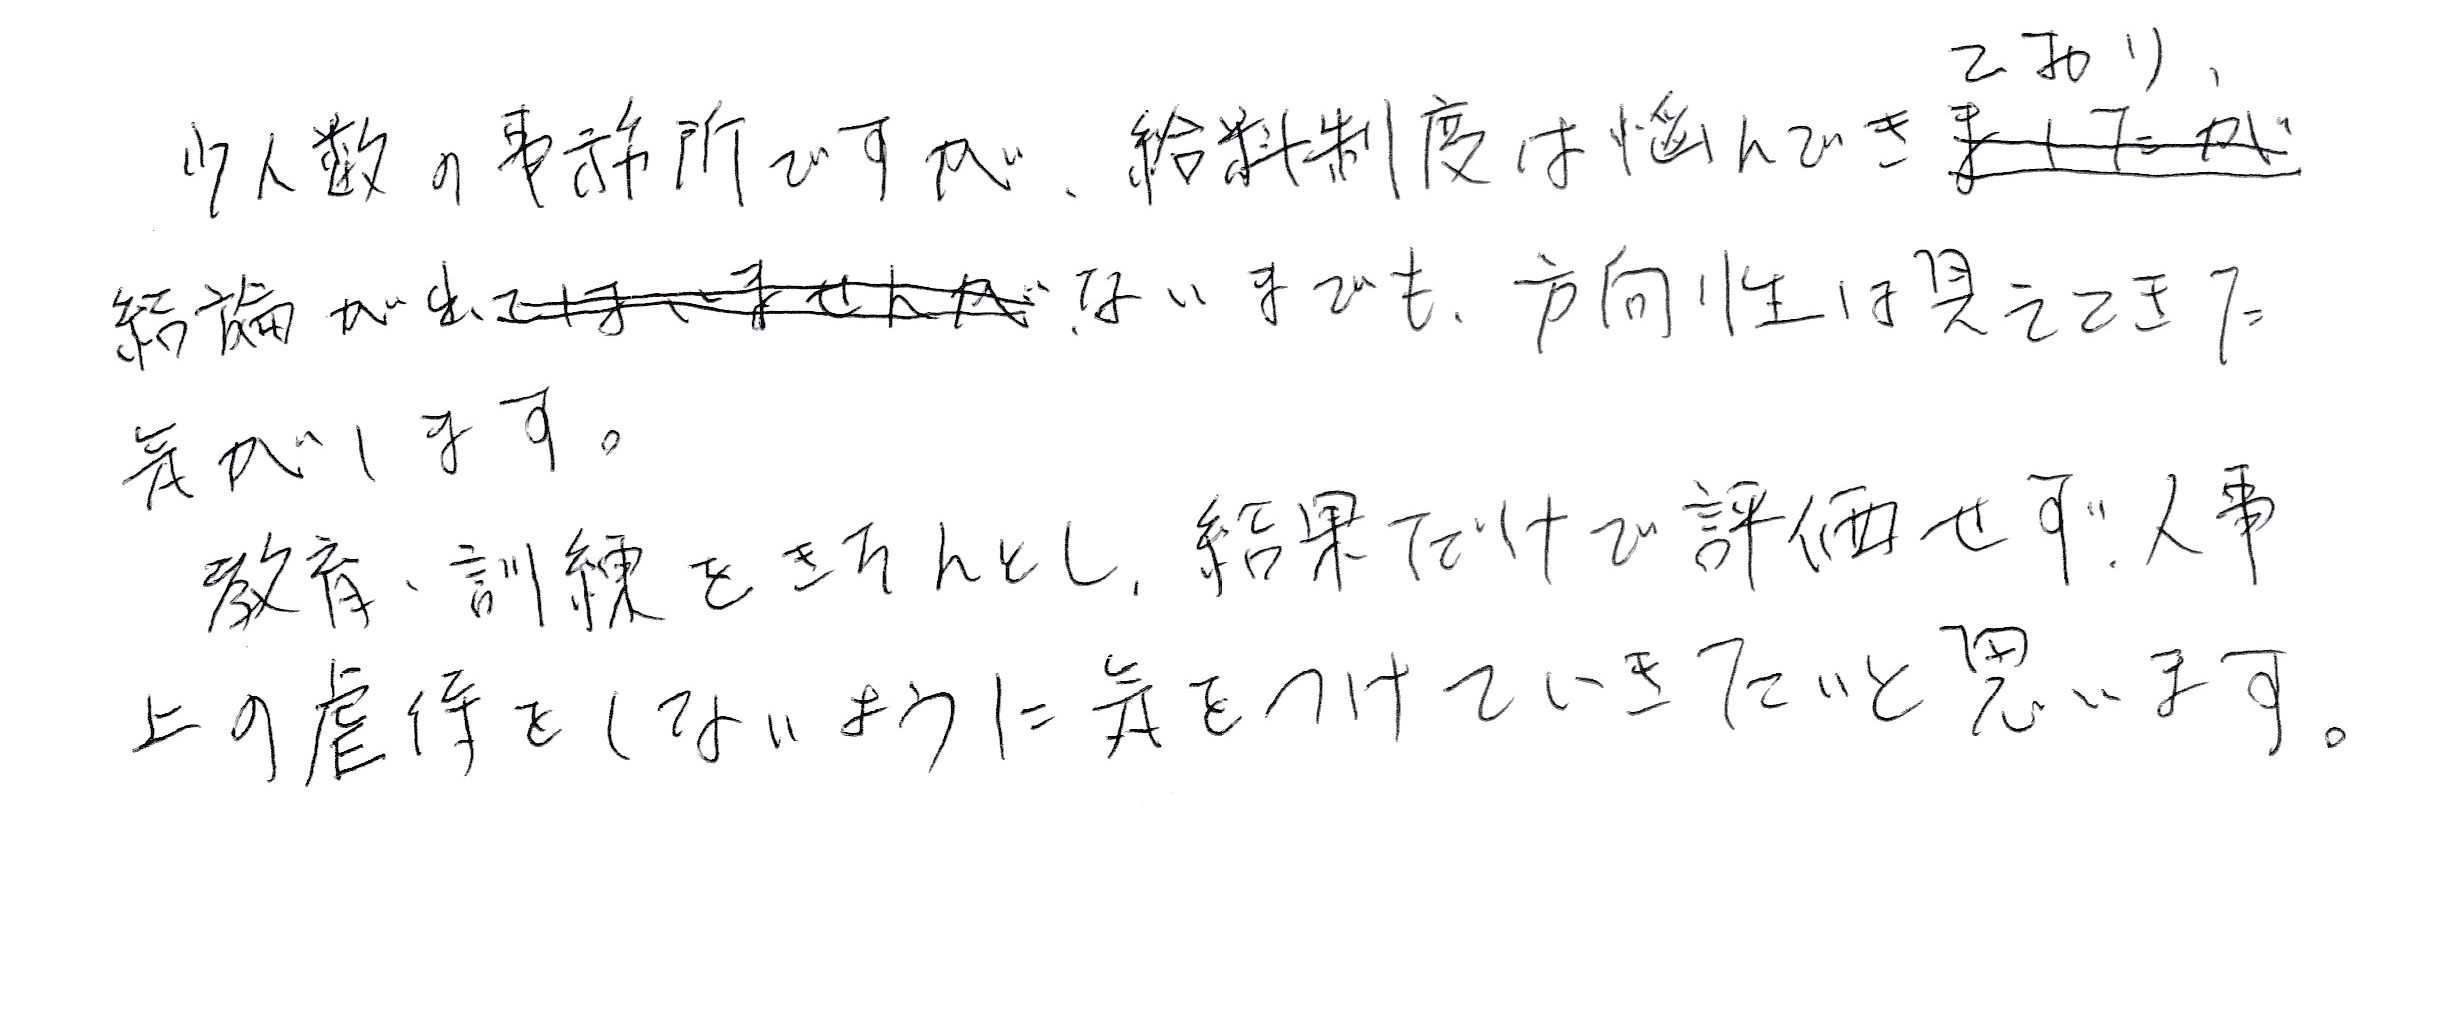 ており、
少人数の事務所ですが、給料制度は悩んできましたが
結論が出てはいませんが、ないまでも、方向性は見えてきた
気がします。
教育、訓練をきちんとし、結果だけで評価せず、人事
上の虐待をしないように気をつけていきたいと思います。